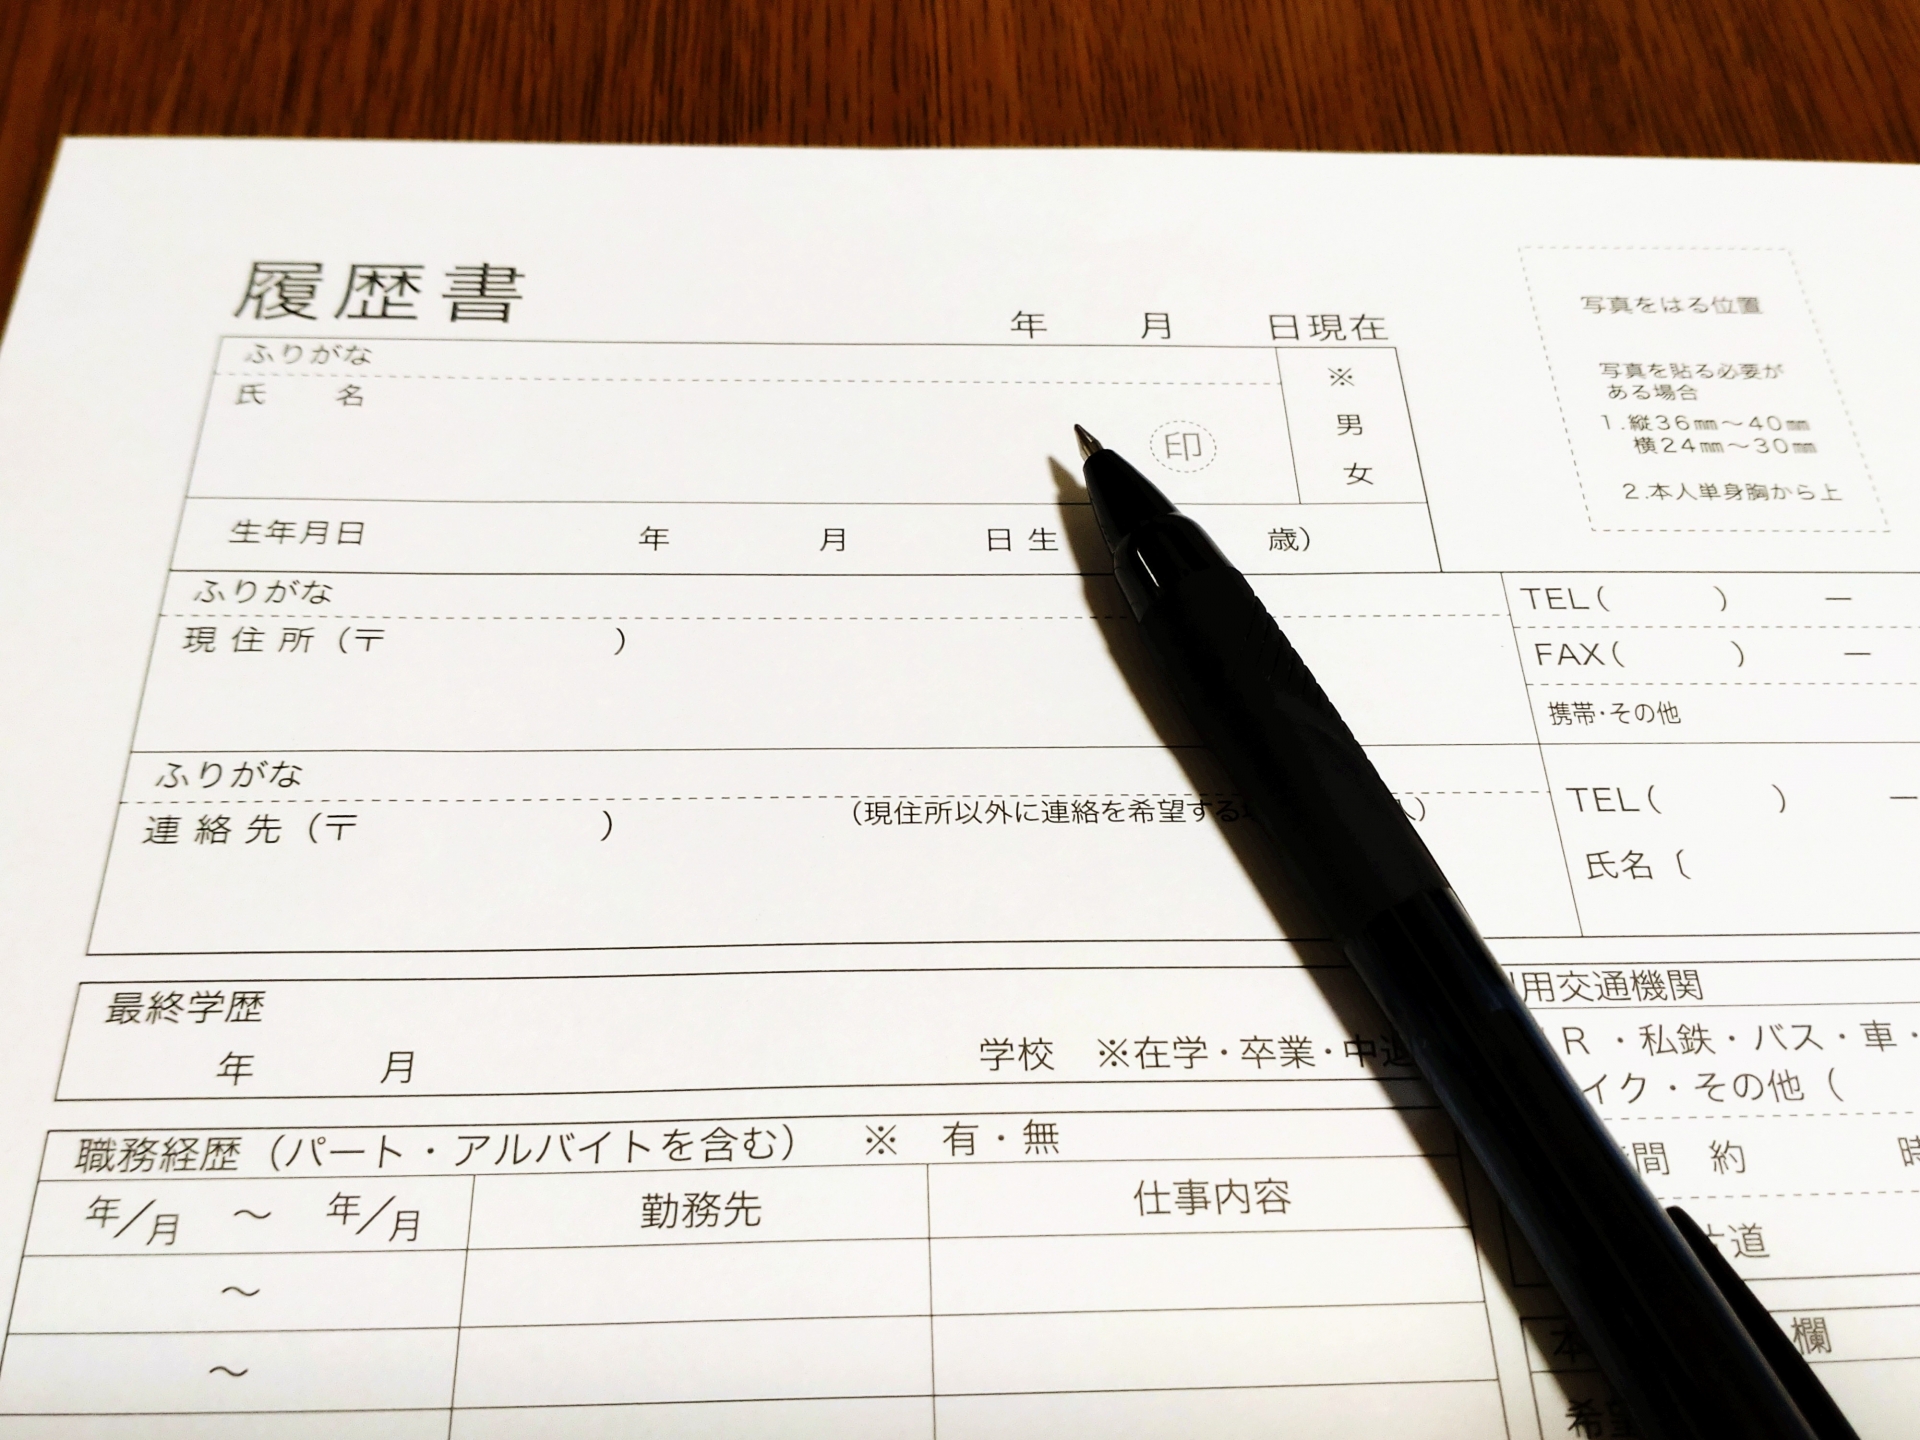 履歴書
年 月 日現在
写真をはる位置
写真を貼る必要が
ある場合
1.縦36㎜～40㎜
横24㎜～30㎜
2.本人単身胸から上
ふりがな
氏 名
印
※
男
女
生年月日 年 月 日生 歳)
ふりがな
現住所 (〒 )
TEL( ) ―
FAX( ) ―
携帯・その他
ふりがな
連絡先 (〒 )
(現住所以外に連絡を希望する )
TEL( ) ―
氏名 (
最終学歴
年 月 学校 ※在学・卒業・中退
用交通機関
R ・私鉄・バス・車・
イク・その他 (
間 約 時
片道
職務経歴 (パート・アルバイトを含む) ※ 有・無
年/月 ～ 年/月 勤務先 仕事内容
～
～
本 欄
希望